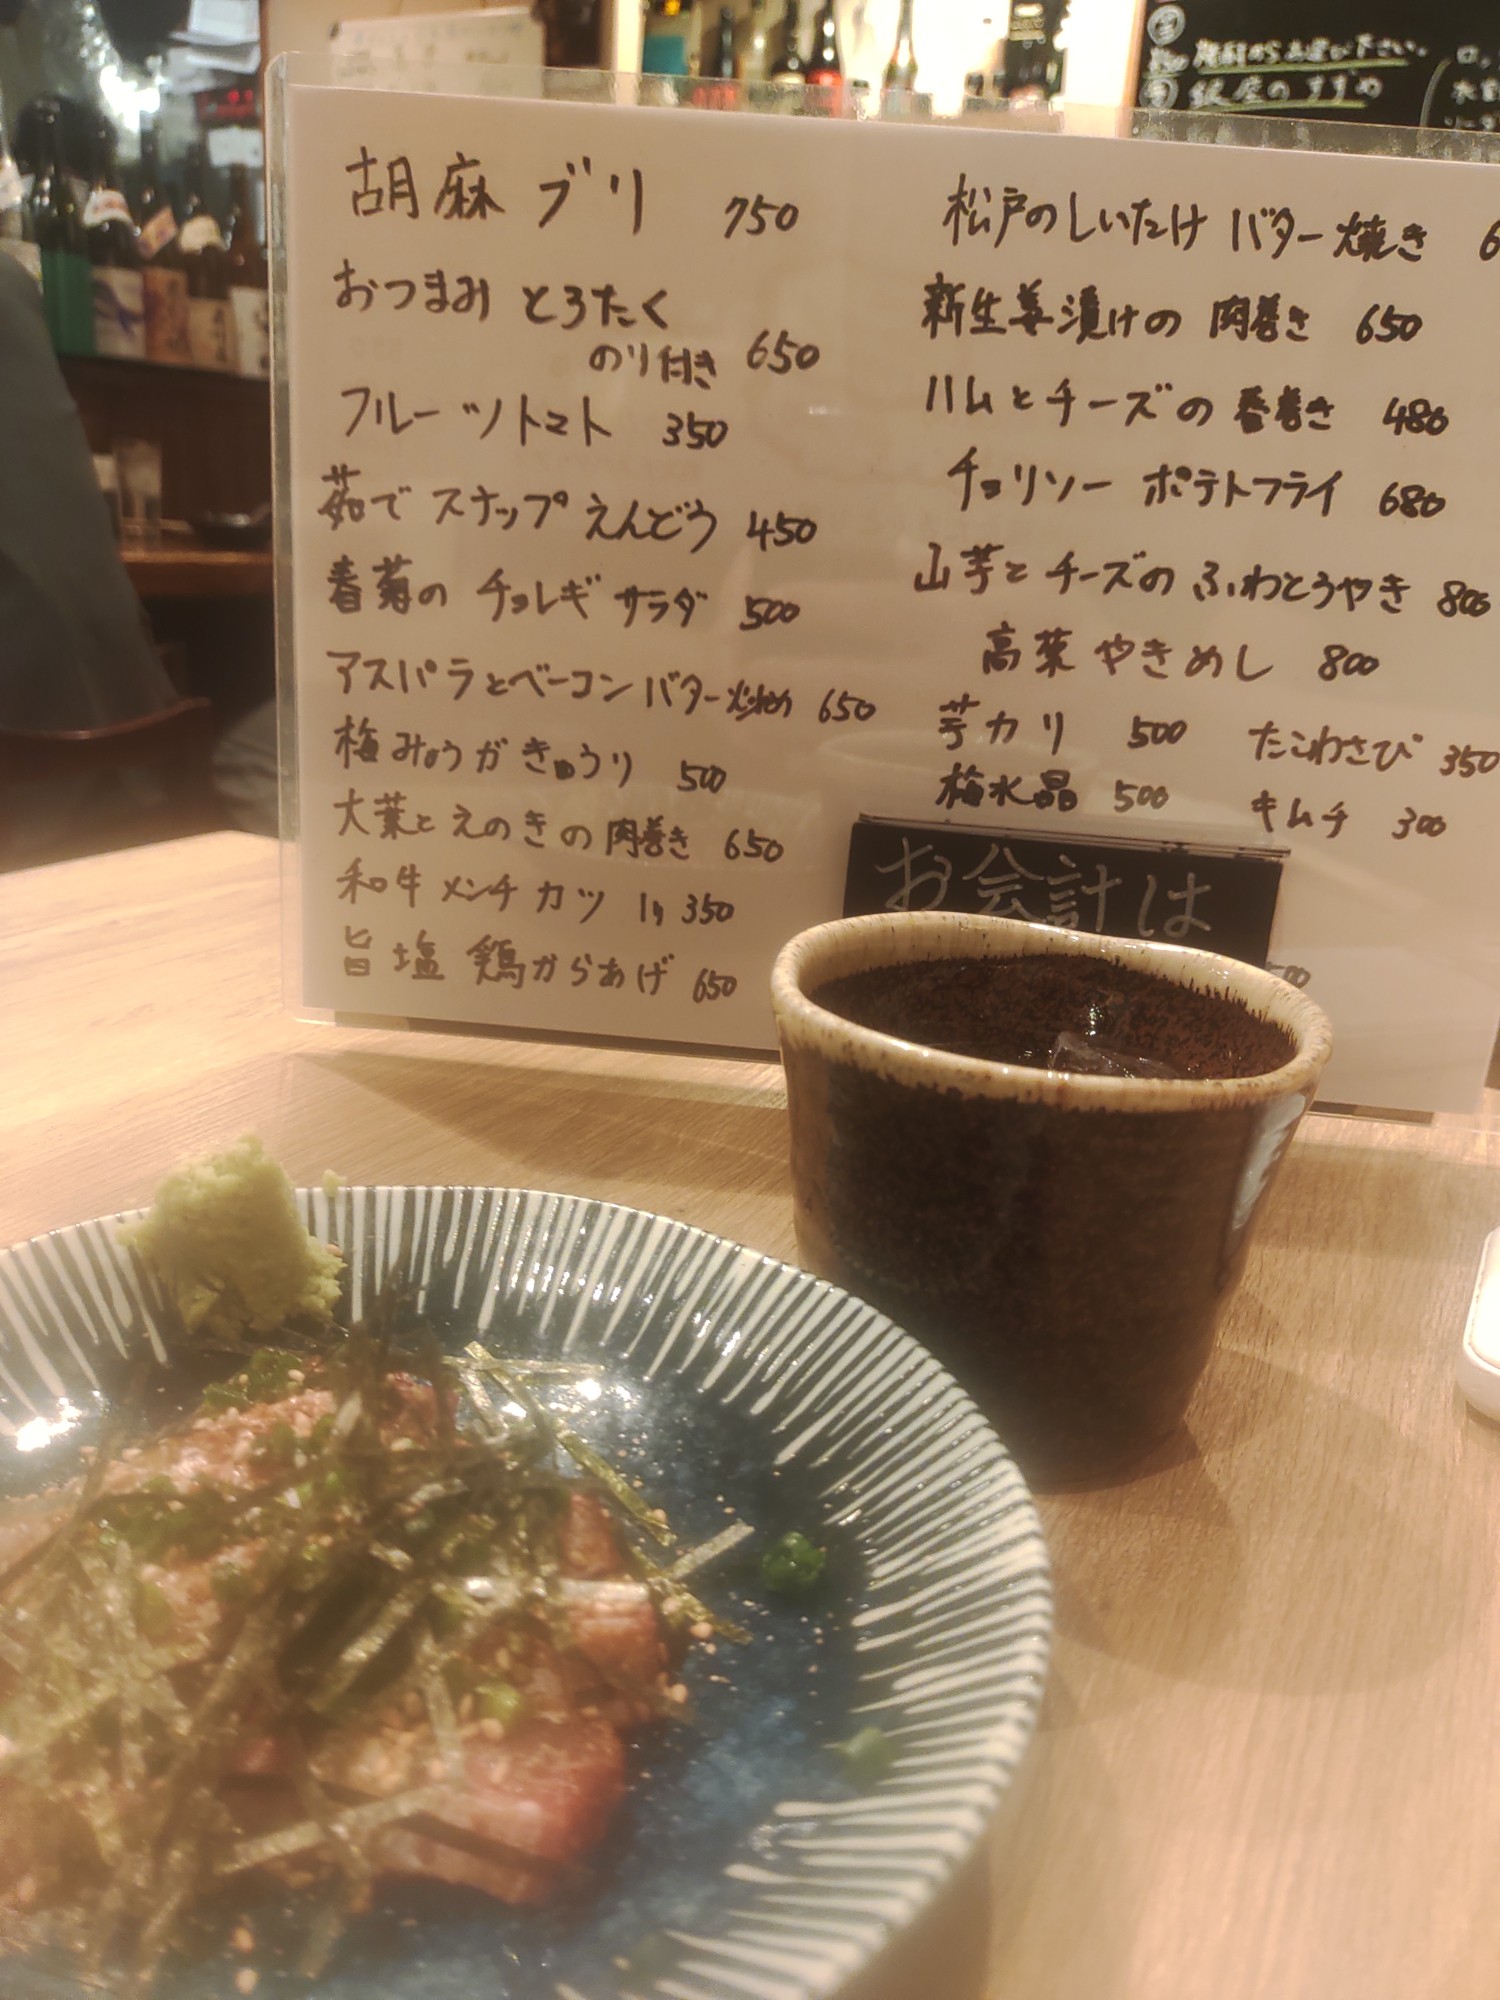 胡麻ブリ 750
おつまみ とろたく
のり付き 650
フルーツトマト 350
茹で スナップえんどう 450
春菊の チョレギサラダ 500
アスパラとベーコンバター炒め 650
梅みょうがきゅうり 500
大葉とえのきの肉巻き 650
和牛メンチカツ 1ケ 350
旨塩 鶏からあげ 650
松戸のしいたけ バター焼き 6
新生姜漬けの 肉巻き 650
ハムとチーズの春巻き 480
チョリソー ポテトフライ 680
山芋とチーズの ふわとろやき 800
高菜 やきめし 800
芋カリ 500 たこわさび 350
梅水晶 500 キムチ 300
お会計は
からお選び下さい。
のすすめ